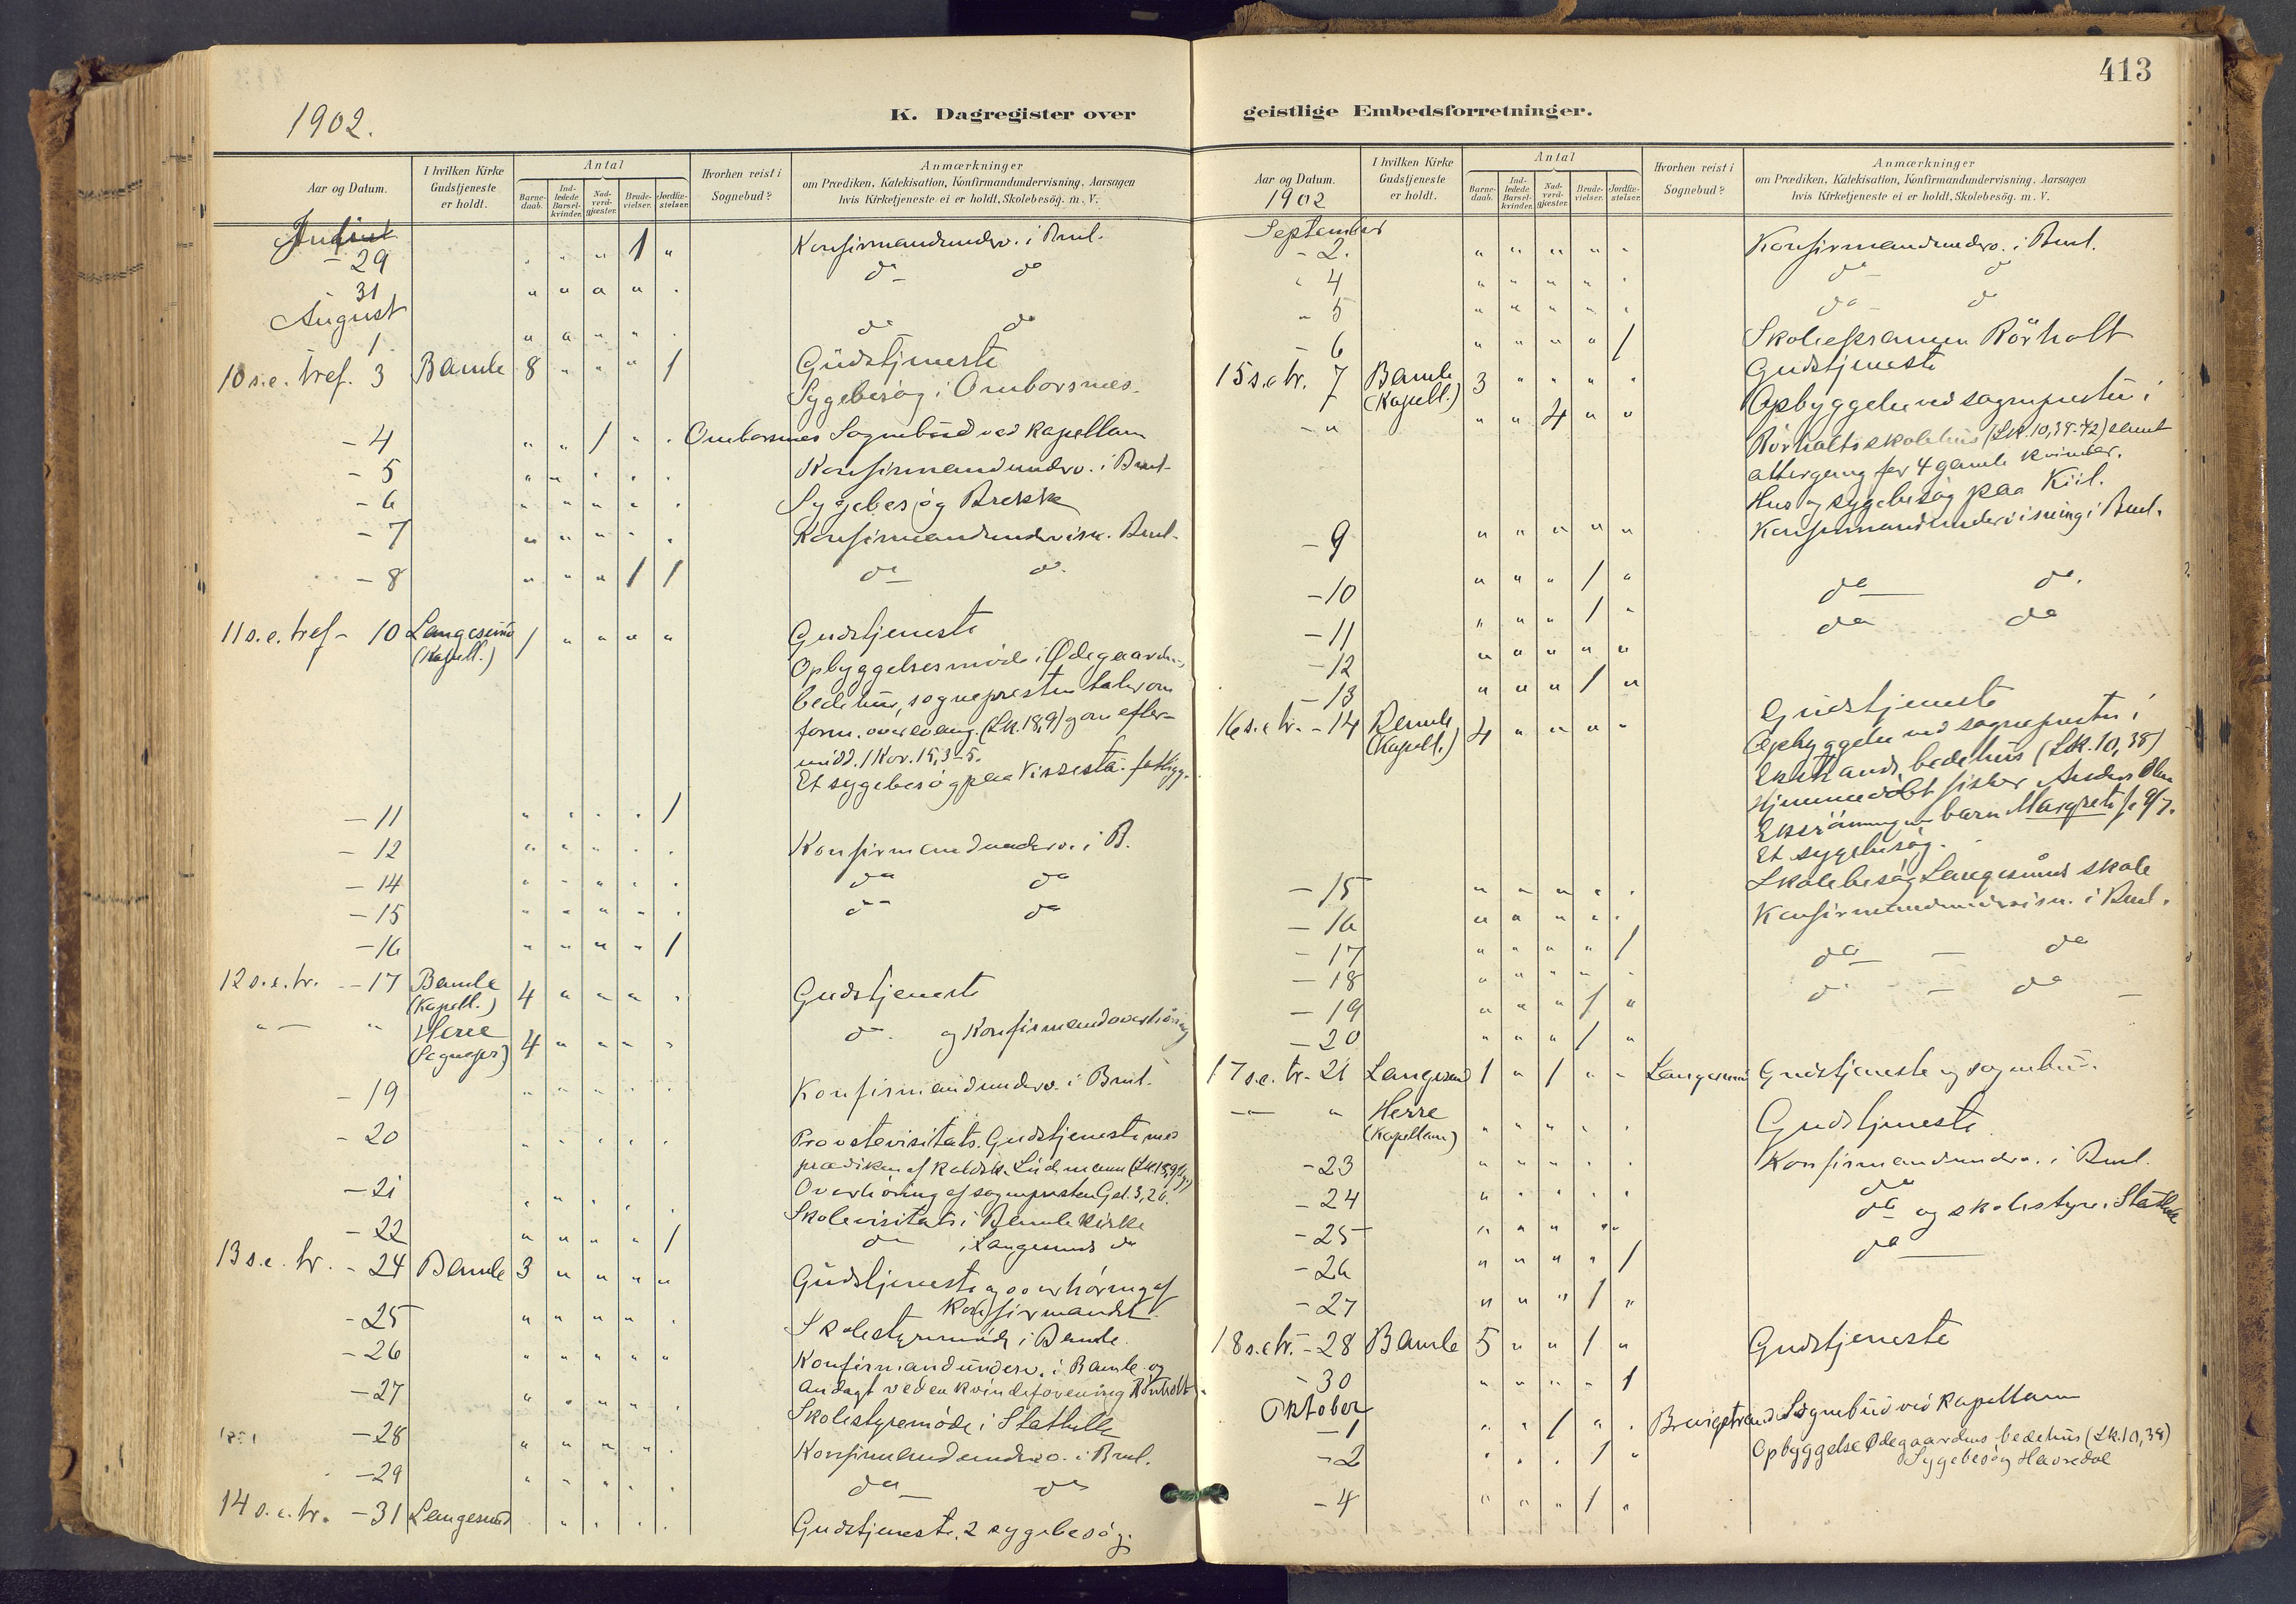 413
1902.
K. Dagregister over geistlige Embedsforretninger.
Aar og Datum. I hvilken Kirke Gudstjeneste er holdt. Antal Barnedaab. Indledede Barselkvinder. Nadverdgjester. Brudevielser. Jordfæstelser. Hvorhen reist i Sognebud? Anmærkninger om Prædiken, Katekisation, Konfirmandundervisning, Aarsagen hvis Kirketjeneste ei er holdt, Skolebesøg. m. V.
- 29 " " " 1 " Konfirmandunderv. i Bml.
31 " " " " " do do
August
- 1 " " " " " do do
10 s.e. tref. 3 Bamle 8 " " " 1 Gudstjeneste
Sygebesøg i Omborsnes.
- 4 " " 1 " " Omborsnes Sognebud ved kapellan
- 5 " " " " " Konfirmandunderv. i Bml.
- 6 " " " " " Sygebesøg Brekka
- 7 " " " " " Konfirmandundervisn. Bml.
- 8 " " " 1 1 do do.
11 s.e. tref - 10 Langesund (Kapell.) 1 " " " " Gudstjeneste
Opbyggelsesmøde i Ødegaardens
bedehus, sognepresten taler om
form. over evang. (Lk. 18,9) og om efter-
midd. 1 Kor. 15, 3-5.
Et sygebesøg paa Vissestad fattigg.
- 11 " " " " 1
- 12 " " " " " Konfirmandunderv. i B.
- 14 " " " " " do do
- 15 " " " " " do do
- 16 " " " " 1
12 s.e. tr. - 17 Bamle (Kapell.) 4 " " " " Gudstjeneste
" - " Herre (Sognepr) 4 " " " " do. og Konfirmandoverhøring
- 19 " " " " " Konfirmandunderv. i Bml.
- 20 " " " " " Provstevisitats. Gudstjeneste med
prædiken af
Overhøring af sognepresten Gal. 3,26.
- 21 " " " " " Skolevisitats i Bamle kirke
- 22 " " " " 1 do i Langesunds do
13 s.e. tr. - 24 Bamle 3 " " " " Gudstjeneste og overhøring af
Konfirmander
- 25 " " " " " Skolestyremøde i Bamle.
- 26 " " " " " Konfirmandunderv. i Bamle og
Andagt ved en kvindeforening Rönholt.
- 27 " " " " " Skolestyremøde i Stathelle
- 28 " " " " " Konfirmandunderv. i Bml.
- 29 " " " " " do do
14 s.e. tr. - 31 Langesund " " " " Gudstjeneste, 2 sygebesøg.
Aar og Datum. I hvilken Kirke Gudstjeneste er holdt. Antal Barnedaab. Indledede Barselkvinder. Nadverdgjester. Brudevielser. Jordfæstelser. Hvorhen reist i Sognebud? Anmærkninger om Prædiken, Katekisation, Konfirmandundervisning, Aarsagen hvis Kirketjeneste ei er holdt, Skolebesøg. m. V.
1902
September
- 2. " " " " " Konfirmandunderv. i Bml.
" 4 " " " " " do do
" 5 " " " " " do do
- 6 " " " " 1 Skoleeksamen Rörholt
15 s.e tr. 7 Bamle (Kapell.) 3 " " " " Gudstjeneste
- " " " 4 " " Opbyggelse ved sognepresten i
Rörholts skolehus (Lk. 10,38-42) samt
altergang for 4 gamle kvinder.
Hus og sygebesøg paa Kiil.
- 9 " " " " " Konfirmandundervisning i Bml.
- 10 " " " 1 " do do.
- 11 " " " 1 " do do
- 12 " " " " "
- 13 " " " 1 "
16 s.e tr. - 14 Bamle (Kapell.) 4 " " " " Gudstjeneste
Opbyggelse ved sognepresten i
bedehus (Lk. 10,38)
Hjemmedöbt fisker Anders
barn Margrete f. 9/7.
Et sygebesøg.
- 15 " " " " " Skolebesøg Langesunds skole
- 16 " " " " " Konfirmandundervisn. i Bml.
- 17 " " " " 1 do - do
- 18 " " " " " do - do -
- 19 " " " 1 "
- 20 " " " 1 "
17 s.e. tr. - 21 Langesund 1 " 1 " " Langesund Gudstjeneste og sognebud.
- " - " Herre (Kapellan) " " " " Gudstjeneste
- 23 " " " " " Konfirmandunderv. i Bml.
- 24 " " " " " do
- 25 " " " " " do og skolestyre i Stathelle
- 26 " " " " 1 do
- 27 " " " 1 "
18 s.e tr. - 28 Bamle 5 " " 1 " Gudstjeneste
- 30 " " " " 1
Oktober
- 1 " " 1 " " Brevigstrand Sognebud ved kapellan
- 2 " " " 1 " Opbyggelse Ødegaardens bedehus (Lk. 10,38)
Sygebesøg Havredal
- 4 " " " 1 "